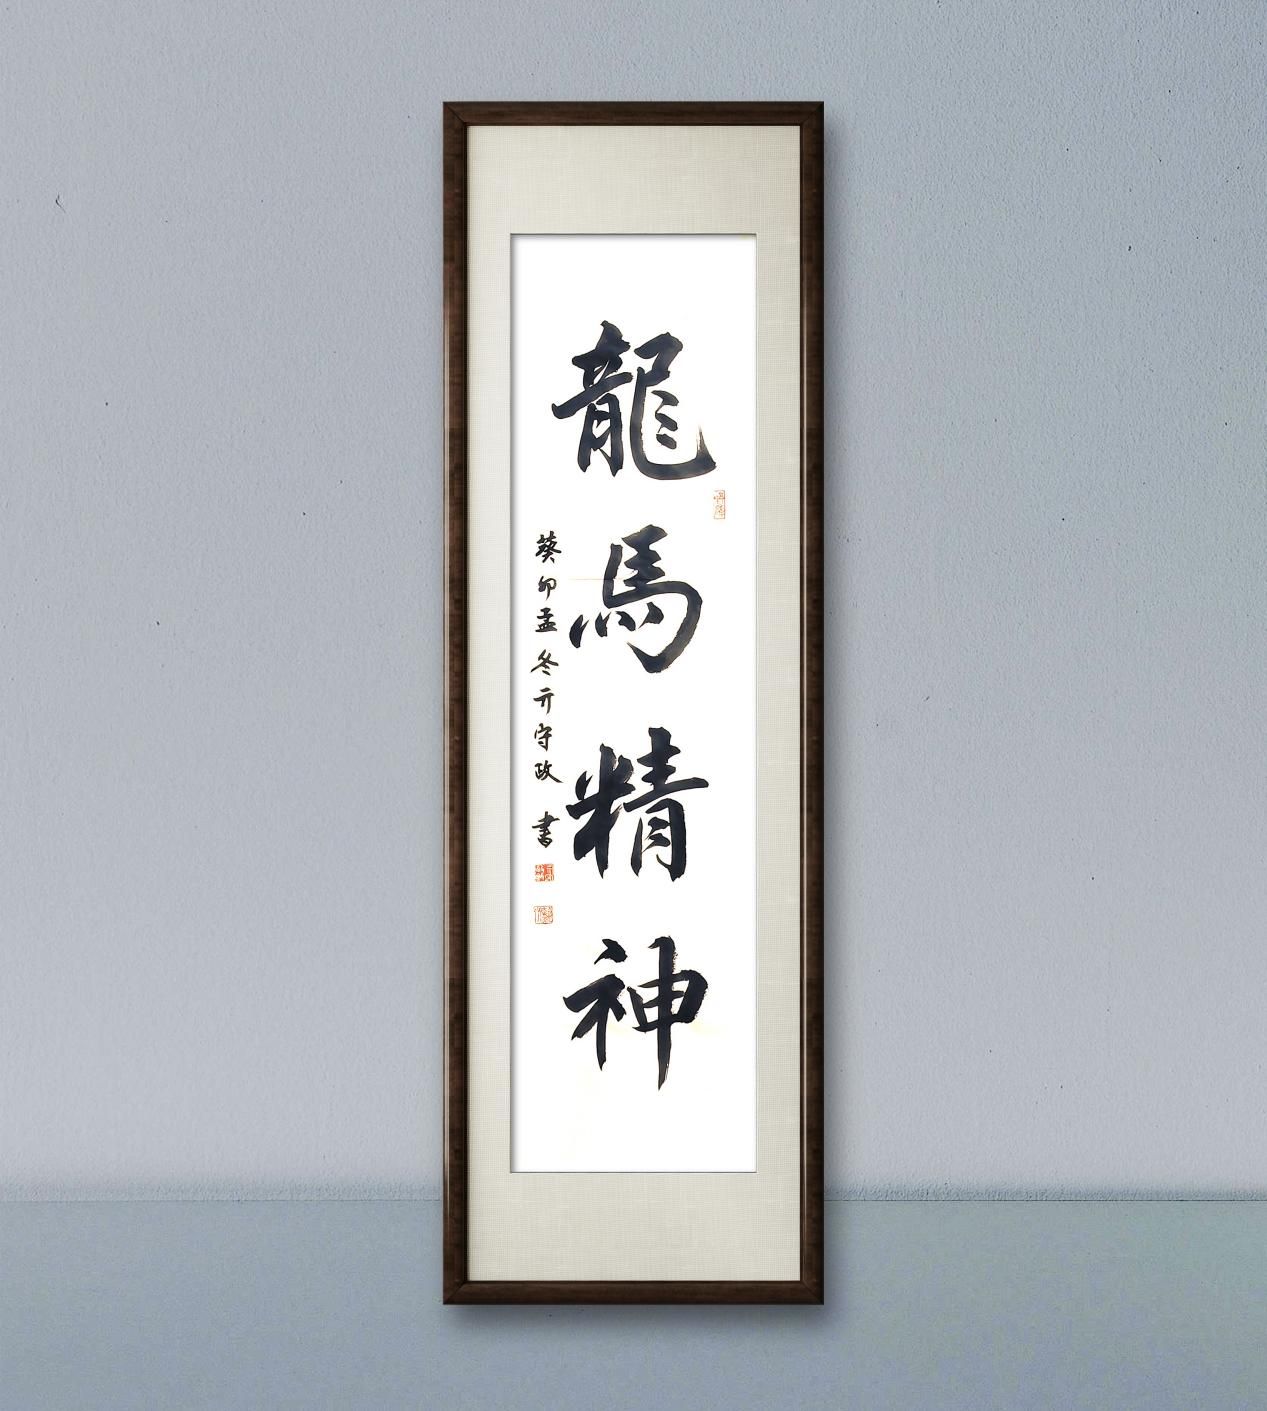 龍馬精神
癸卯孟冬亓守政書